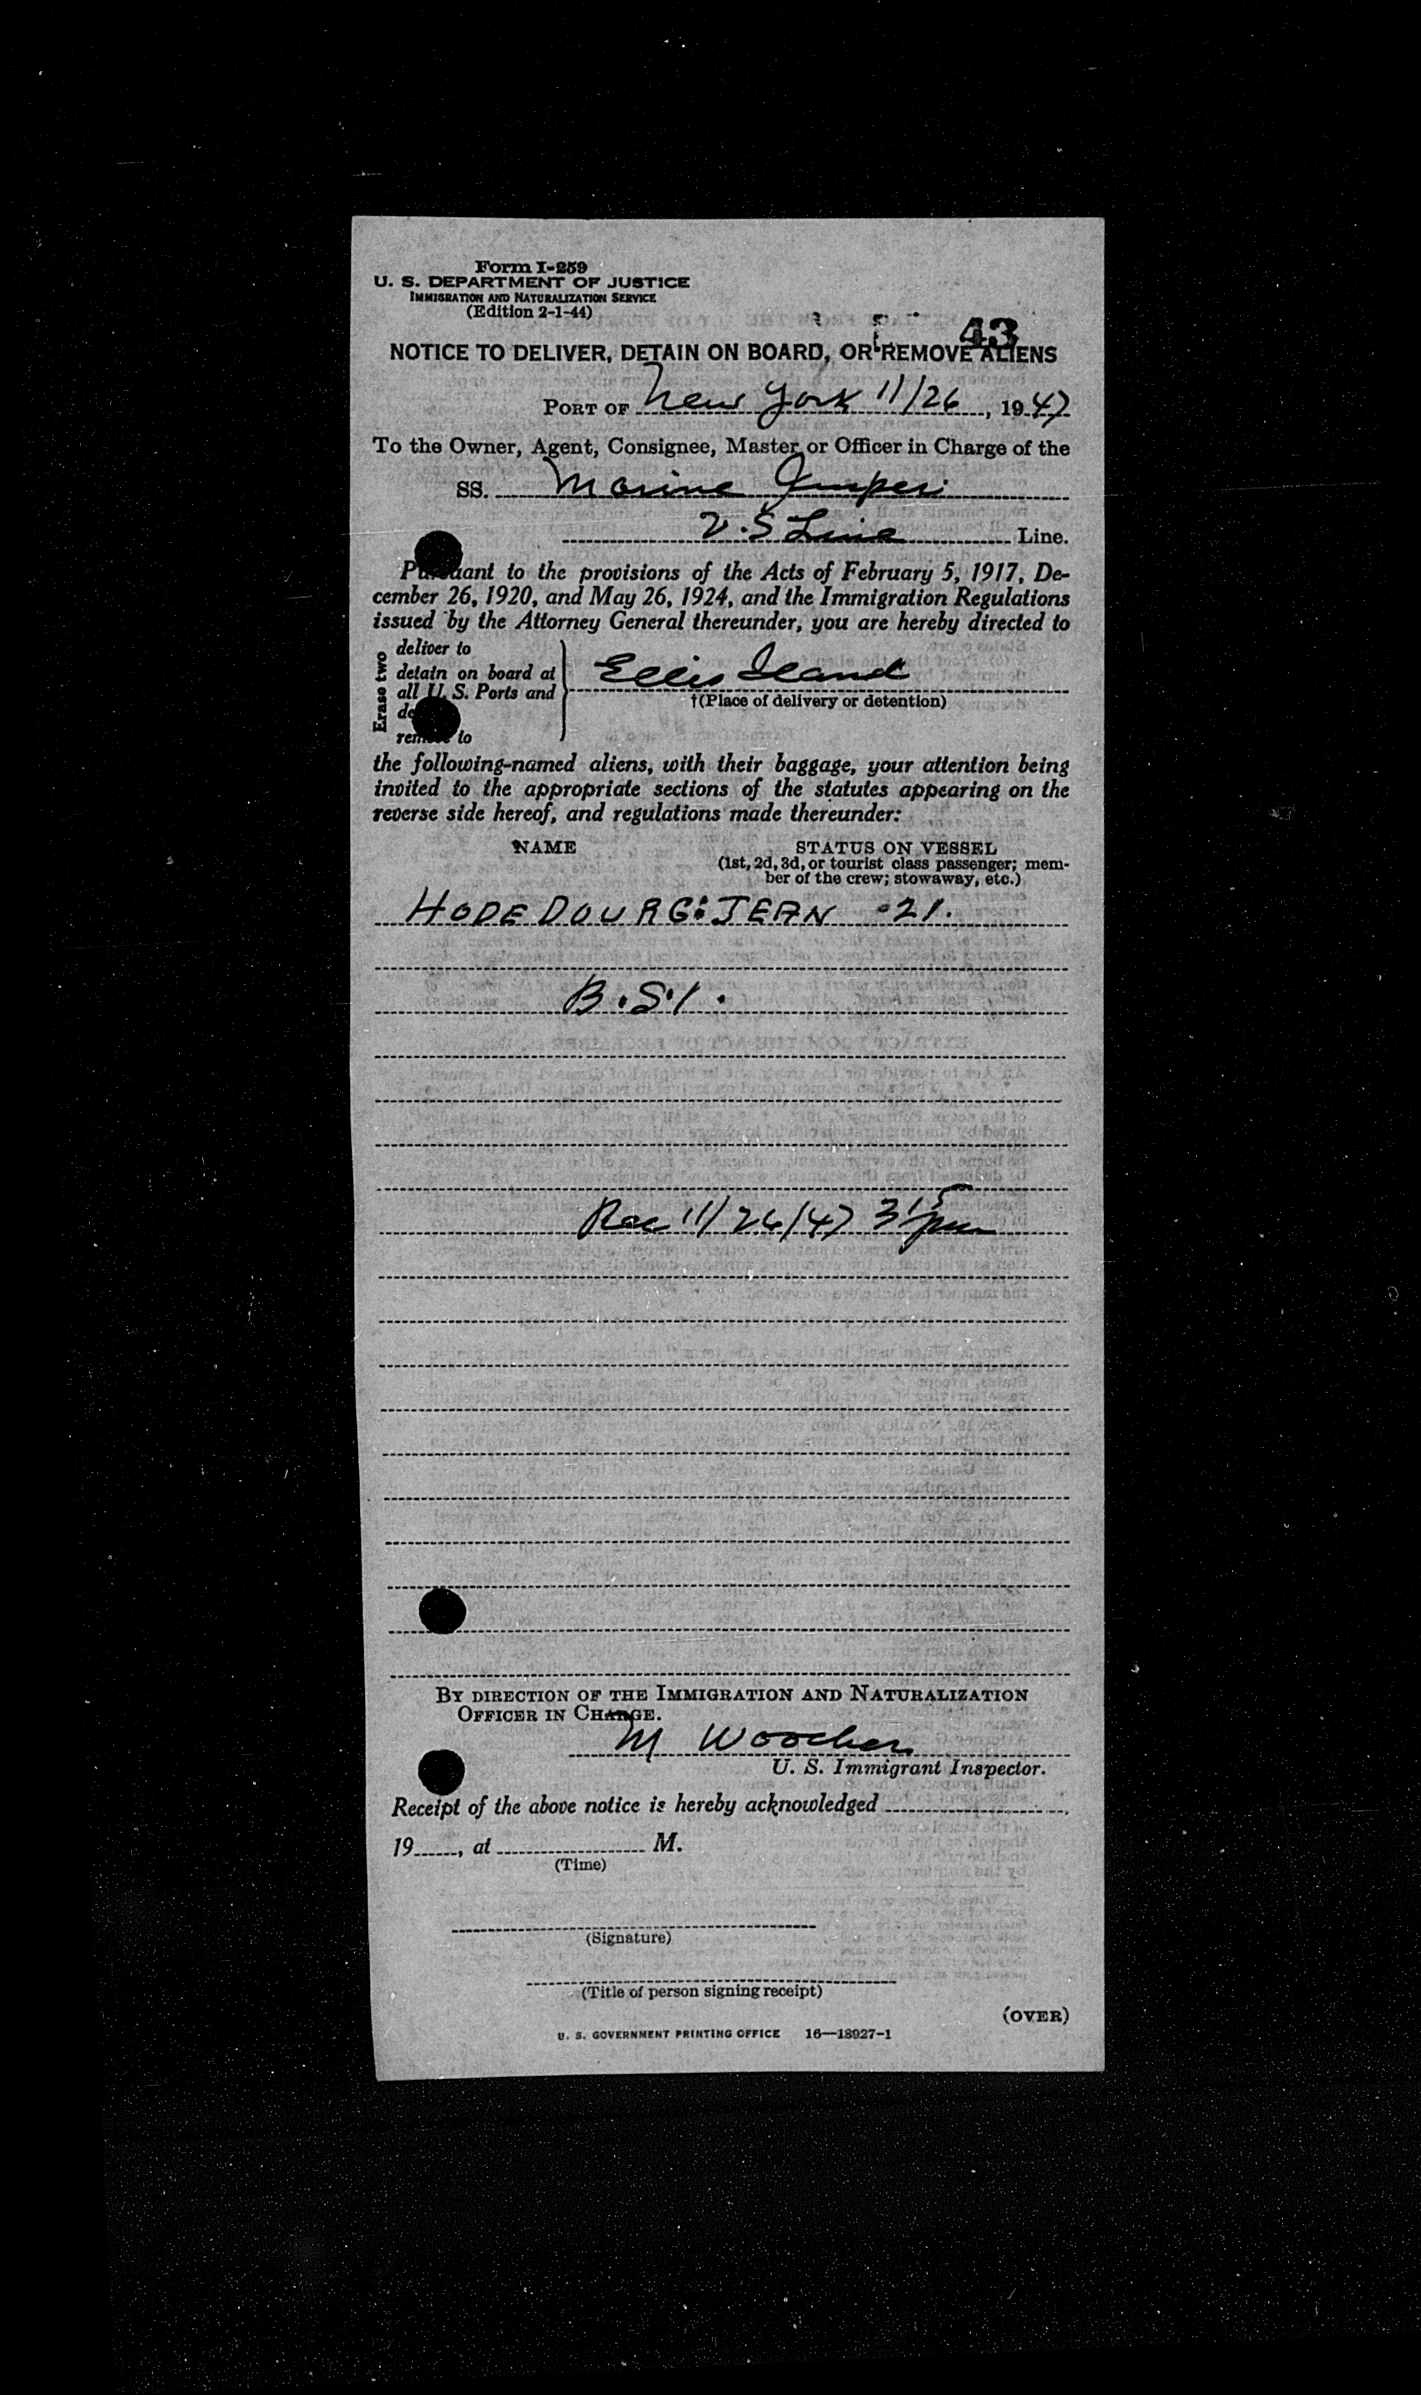 Form I-259
U. S. DEPARTMENT OF JUSTICE
IMMIGRATION AND NATURALIZATION SERVICE
(Edition 2-1-44)
43
NOTICE TO DELIVER, DETAIN ON BOARD, OR REMOVE ALIENS
PORT OF New York 11/26, 1947
To the Owner, Agent, Consignee, Master or Officer in Charge of the
SS. Marine
U.S Line Line.
Pursuant to the provisions of the Acts of February 5, 1917, De-
cember 26, 1920, and May 26, 1924, and the Immigration Regulations
issued by the Attorney General thereunder, you are hereby directed to
Erase two
deliver to
detain on board at
all U. S. Ports and
remove to
Ellis Iland
†(Place of delivery or detention)
the following-named aliens, with their baggage, your attention being
invited to the appropriate sections of the statutes appearing on the
reverse side hereof, and regulations made thereunder:
NAME STATUS ON VESSEL
(1st, 2d, 3d, or tourist class passenger; mem-
ber of the crew; stowaway, etc.)
HODEDOURG: JEAN 21.
B.S.I.
Rec 11/26/47 3 15 pm
BY DIRECTION OF THE IMMIGRATION AND NATURALIZATION
OFFICER IN CHARGE.
M Woocher
U. S. Immigrant Inspector.
Receipt of the above notice is hereby acknowledged
19 , at M.
(Time)
(Signature)
(Title of person signing receipt)
(OVER)
U. S. GOVERNMENT PRINTING OFFICE 16—18927-1